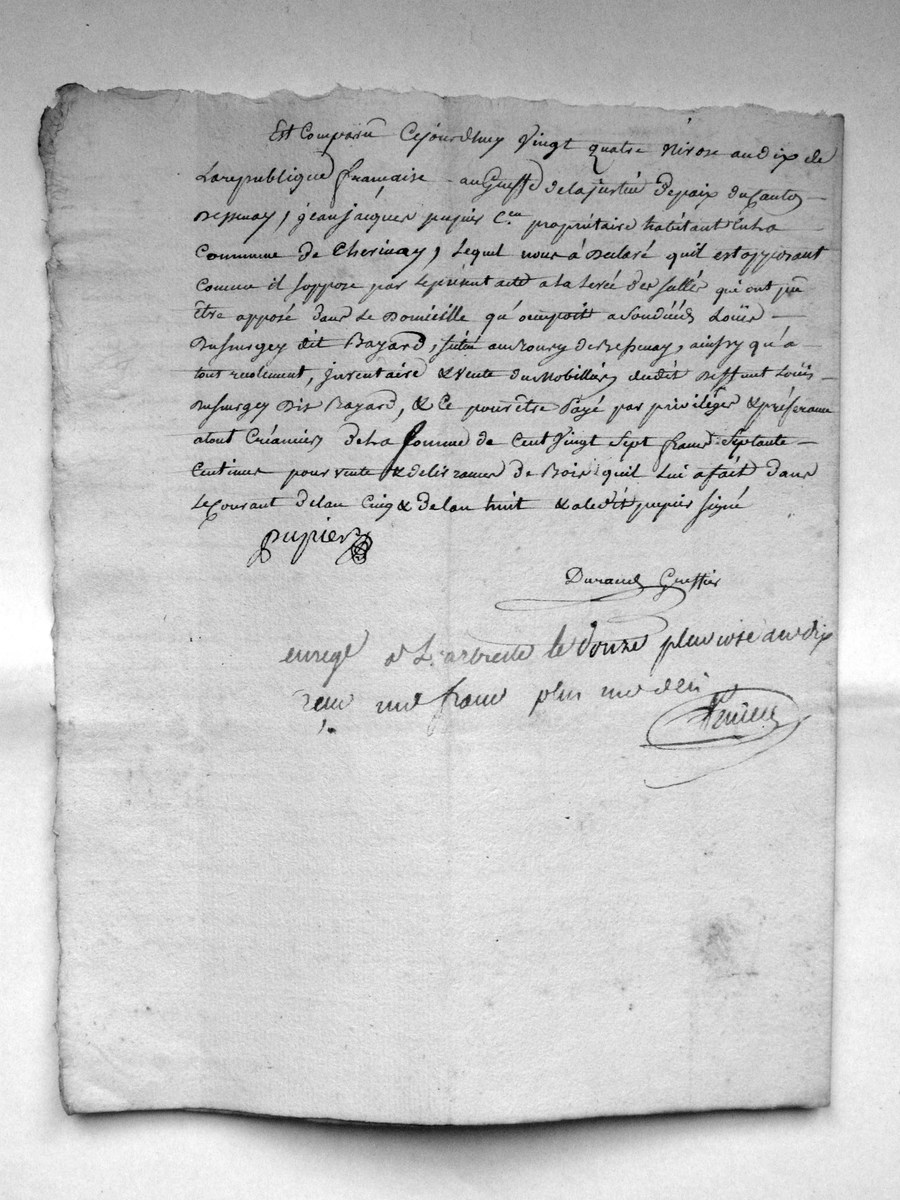 Est Comparu Cejourdhuy Vingt quatre Nivose an dix de
La republique française au Greffe de la justice de paix du Canton
De Bessenay, jean jacques pupier C.en propriétaire habitant en la
Commune de Chevinay, Lequel nous à Declaré quil est opposant
Comme il soppose par Le présent acte a la Levée des scellés qui ont pu
être apposé dans Le Domicille qu'occupoit a son décès Loüis
Dusurgey dit Bayard, situé au Bourg de Bessenay, ainsy qu'a
tout recolement, jnventaire & vente du Mobillier dudit Deffunt Loüis
Dusurgey Dit Bayard, & Ce pour être Payé par privilége & préferance
a tout Créancier De la somme de Cent Vingt Sept francs Septante
Centimes pour vente & delivrance de Bois quil Lui a fait dans
Le Courant de lan Cinq & de lan huit & a ledit pupier signé
pupier
Durand Greffier
enregé a L'arbresle le douze pluviose an dix
reçu un franc plus un deci